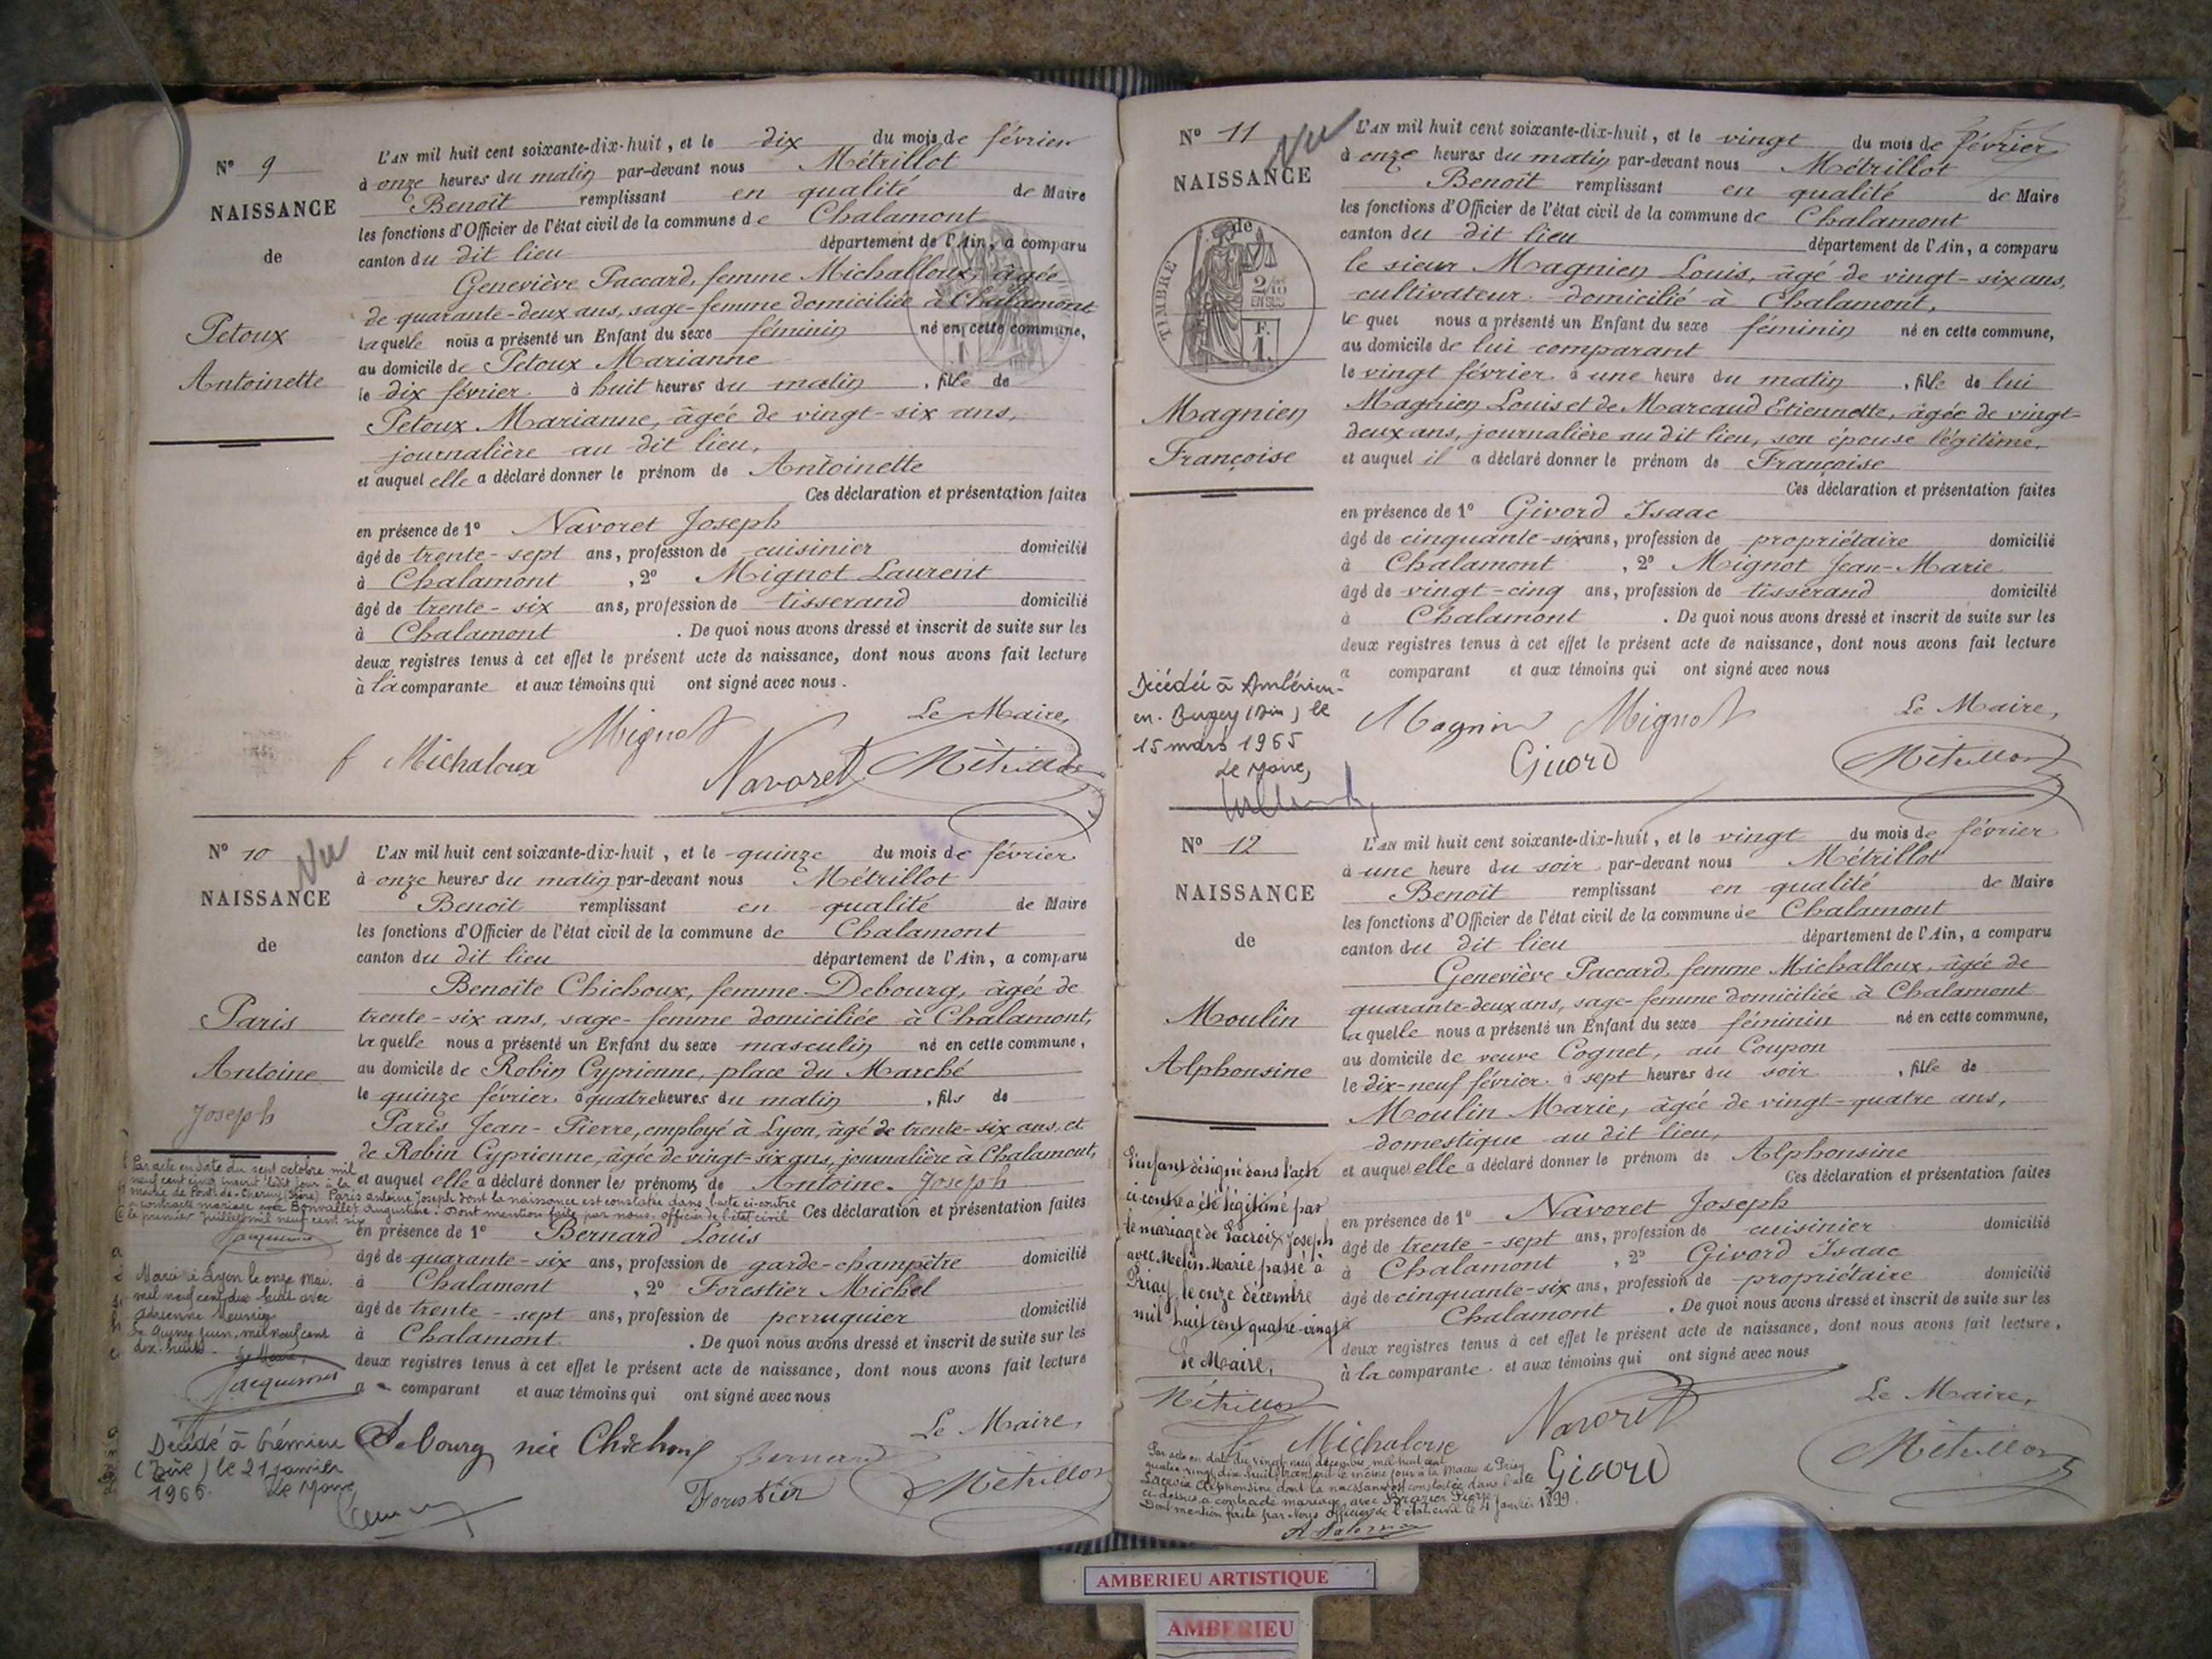 N° 9
NAISSANCE
de
Petoux
Antoinette
L'AN mil huit cent soixante-dix-huit, et le dix du mois de février
à onze heures du matin par-devant nous Métrillot
Benoit remplissant en qualité de Maire
les fonctions d'Officier de l'état civil de la commune de Chalamont
canton du dit lieu département de l'Ain, a comparu
Geneviève Paccard, femme Michalloux, âgée
de quarante-deux ans, sage-femme domiciliée à Chalamont
laquelle nous a présenté un Enfant du sexe féminin né en cette commune,
au domicile de Petoux Marianne
le dix février à huit heures du matin, fille de
Petoux Marianne, âgée de vingt-six ans,
journalière au dit lieu,
et auquel elle a déclaré donner le prénom de Antoinette
Ces déclaration et présentation faites
en présence de 1° Navoret Joseph
âgé de trente-sept ans, profession de cuisinier domicilié
à Chalamont, 2° Mignot Laurent
âgé de trente-six ans, profession de tisserand domicilié
à Chalamont. De quoi nous avons dressé et inscrit de suite sur les
deux registres tenus à cet effet le présent acte de naissance, dont nous avons fait lecture
à la comparante et aux témoins qui ont signé avec nous.
Le Maire,
f Michaloux Mignot Navoret Métrillot
N° 10
Vu
NAISSANCE
de
Paris
Antoine
Joseph
L'AN mil huit cent soixante-dix-huit, et le quinze du mois de février
à onze heures du matin par-devant nous Métrillot
Benoit remplissant en qualité de Maire
les fonctions d'Officier de l'état civil de la commune de Chalamont
canton du dit lieu département de l'Ain, a comparu
Benoite Chichoux, femme Debourg, âgée de
trente-six ans, sage-femme domiciliée à Chalamont,
laquelle nous a présenté un Enfant du sexe masculin né en cette commune,
au domicile de Robin Cyprienne, place du Marché
le quinze février à quatre heures du matin, fils de
Paris Jean-Pierre, employé à Lyon, âgé de trente-six ans et
de Robin Cyprienne, âgée de vingt-six ans, journalière à Chalamont,
et auquel elle a déclaré donner les prénoms de Antoine-Joseph
Ces déclaration et présentation faites
en présence de 1° Bernard Louis
âgé de quarante-six ans, profession de garde-champêtre domicilié
à Chalamont, 2° Forestier Michel
âgé de trente-sept ans, profession de perruquier domicilié
à Chalamont. De quoi nous avons dressé et inscrit de suite sur les
deux registres tenus à cet effet le présent acte de naissance, dont nous avons fait lecture
a comparant et aux témoins qui ont signé avec nous
Le Maire,
Debourg née Chichoux Bernard Forestier Métrillot
Par acte en date du sept octobre mil
neuf cent cinq inscrit ledit jour à la
mairie de Pont-de-Cheruy (Isère) Paris Antoine Joseph dont la naissance est constatée dans l'acte ci-contre
a contracté mariage avec Bonvallet Augustine. Dont mention faite par nous officier de l'état civil
le premier juillet mil neuf cent six
Jacquemet
Marié à Lyon le onze mai
mil neuf cent dix huit avec
Adrienne Meunier
Le quinze juin mil neuf cent
dix-huit. Le Maire,
Jacquemet
Décédé à Crémieu
(Isère) le 21 janvier
1966. Le Maire
N° 11
Vu
NAISSANCE
de
TIMBRE
2/10
EN SUS
F.
1.
Magnien
Françoise
L'AN mil huit cent soixante-dix-huit, et le vingt du mois de février
à onze heures du matin par-devant nous Métrillot
Benoit remplissant en qualité de Maire
les fonctions d'Officier de l'état civil de la commune de Chalamont
canton du dit lieu département de l'Ain, a comparu
le sieur Magnien Louis, âgé de vingt-six ans,
cultivateur domicilié à Chalamont,
lequel nous a présenté un Enfant du sexe féminin né en cette commune,
au domicile de lui comparant
le vingt février à une heure du matin, fille de lui
Magnien Louis et de Marcaud Etiennette, âgée de vingt-
deux ans, journalière au dit lieu, son épouse légitime,
et auquel il a déclaré donner le prénom de Françoise
Ces déclaration et présentation faites
en présence de 1° Givord Isaac
âgé de cinquante-six ans, profession de propriétaire domicilié
à Chalamont, 2° Mignot Jean-Marie
âgé de vingt-cinq ans, profession de tisserand domicilié
à Chalamont. De quoi nous avons dressé et inscrit de suite sur les
deux registres tenus à cet effet le présent acte de naissance, dont nous avons fait lecture
a comparant et aux témoins qui ont signé avec nous
Le Maire,
Magnin Mignot Givord Métrillot
Décédée à Ambérieu-
en-Bugey (Ain) le
15 mars 1965
Le Maire,
N° 12
NAISSANCE
de
Moulin
Alphonsine
L'AN mil huit cent soixante-dix-huit, et le vingt du mois de février
à une heure du soir par-devant nous Métrillot
Benoit remplissant en qualité de Maire
les fonctions d'Officier de l'état civil de la commune de Chalamont
canton du dit lieu département de l'Ain, a comparu
Geneviève Paccard, femme Michalloux, âgée de
quarante-deux ans, sage-femme domiciliée à Chalamont
laquelle nous a présenté un Enfant du sexe féminin né en cette commune,
au domicile de veuve Cognet, au Coupon
le dix-neuf février à sept heures du soir, fille de
Moulin Marie, âgée de vingt-quatre ans,
domestique au dit lieu,
et auquel elle a déclaré donner le prénom de Alphonsine
Ces déclaration et présentation faites
en présence de 1° Navoret Joseph
âgé de trente-sept ans, profession de cuisinier domicilié
à Chalamont, 2° Givord Isaac
âgé de cinquante-six ans, profession de propriétaire domicilié
Chalamont. De quoi nous avons dressé et inscrit de suite sur les
deux registres tenus à cet effet le présent acte de naissance, dont nous avons fait lecture,
à la comparante et aux témoins qui ont signé avec nous
Le Maire,
f Michaloux Navoret Givord Métrillot
L'enfant désigné dans l'acte
ci-contre a été légitimé par
le mariage de Lacroix Joseph
avec Melin Marie passé à
Priay, le onze décembre
mil huit cent quatre-vingt
Le Maire,
Métrillot
Par acte en date du vingt-neuf décembre mil huit cent
quatre vingt dix huit, transcrit le même jour à la Mairie de Priay
Lacroix Alphonsine dont la naissance est constatée dans l'acte
ci-dessus a contracté mariage avec Brazier Pierre
Dont mention faite par Nous Officier de l'état civil le 4 Janvier 1899.
AMBERIEU ARTISTIQUE
AMBERIEU